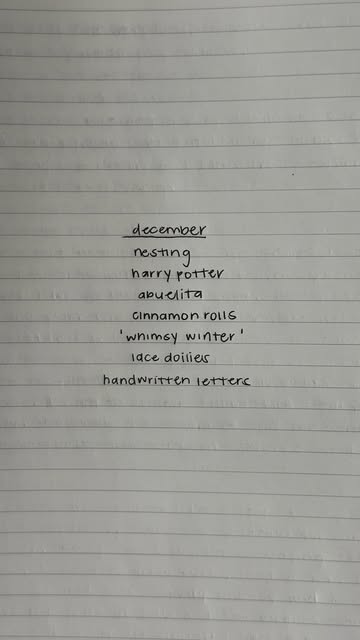 december
nesting
harry potter
abuelita
cinnamon rolls
'whimsy winter'
lace doilies
handwritten letters